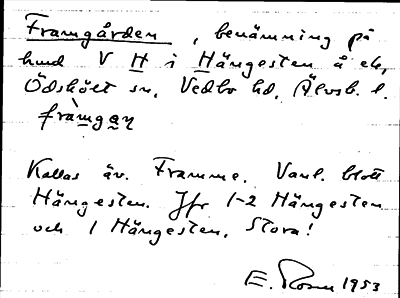 Framgården, benämning på
hmd V H i Hängesten å ek,
Ödskölt sn, Vedbo hd, Älvsb. l.
fràmgan
Kallas äv. Framme. Vanl. blott
Hängesten. Jfr 1-2 Hängesten
och 1 Hängesten, Stora!
E. 1953